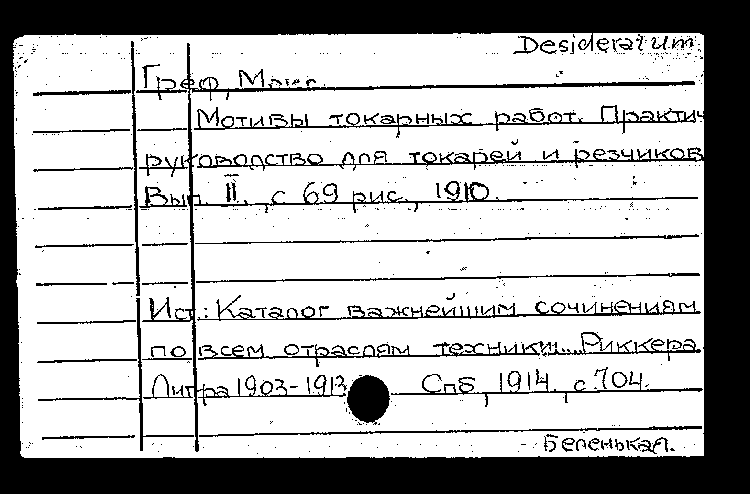 Desideratum
Греф, Макс.
Мотивы токарных работ. Практич
руководство для токарей и резчиков
Вып. II., с 69 рис., 1910.
Ист.: Каталог важнейшим сочинениям
по всем отраслям техники... Риккера.
Литра 1903-1913 Спб, 1914, с 704.
Беленькая.